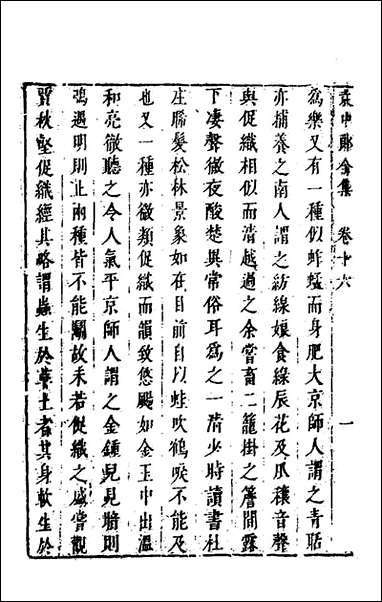 袁中郎全集　卷十六　一
為樂又有一種似蚱蜢而身肥大京師人謂之青聒
亦捕養之南人謂之紡線娘食綠辰花及瓜穰音聲
與促織相似而清越過之余嘗畜二籠掛之簷間露
下凄聲徹夜酸楚異常俗耳為之一清少時讀書杜
庄晞髮松林景象如在目前自以蛙吹鶴唳不能及
也又一種亦微類促織而韻致悠颺如金玉中出温
和亮徹聽之令人氣平京師人謂之金鍾兒見暗則
鳴遇明則止兩種皆不能鬭故未若促織之盛嘗觀
賈秋壑促織經其略謂蟲生於草土者其身軟生於